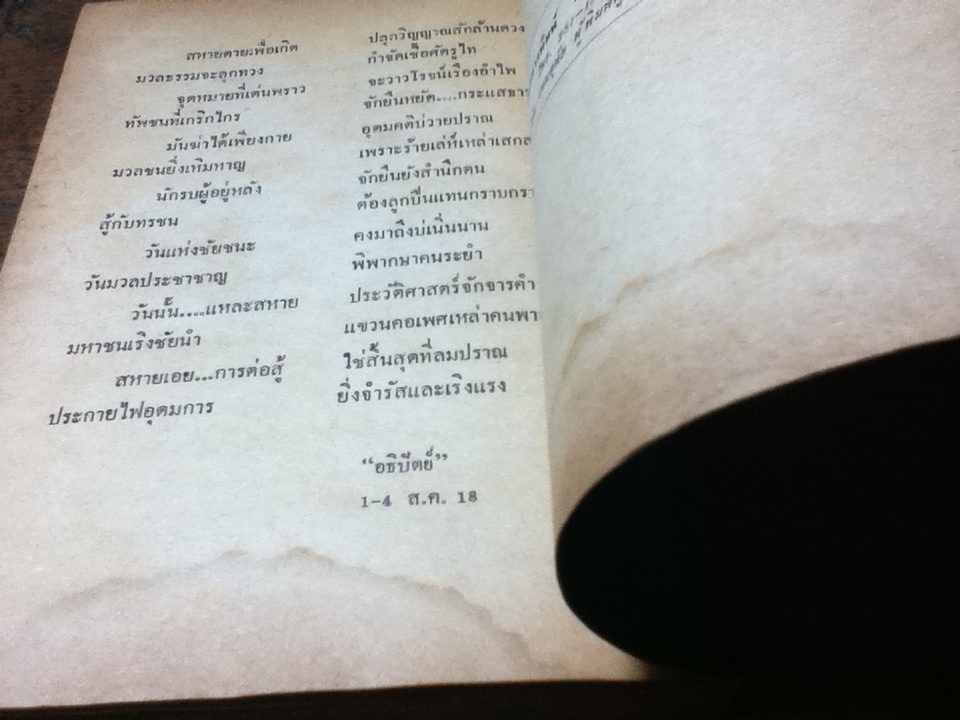 สหายตายเพื่อเกิด ปลุกวิญญาณสักล้านดวง
มวลธรรมจะลุกทวง กำจัดเชื้อศัตรูไท
จุดหมายที่เด่นพราว จะวาวโรจน์เรืองอำไพ
ทัพชนที่เกริกไกร จักยืนหยัด....กระแส
มันฆ่าได้เพียงกาย อุดมคติบ่วายปราณ
มวลชนยิ่งเหิมหาญ เพราะร้ายเล่ห์เหล่า
นักรบผู้อยู่หลัง จักยืนยังสำนึกตน
สู้กับทรชน ต้องลูกปืนแทนกราบ
วันแห่งชัยชนะ คงมาถึงบ่เนิ่นนาน
วันมวลประชาชาญ พิพากษาคนระยำ
วันนั้น....แหละสหาย ประวัติศาสตร์จักจารคำ
มหาชนเริงชัยนำ แขวนคอเพศเหล่าคน
สหายเอย...การต่อสู้ ใช่สิ้นสุดที่ลมปราณ
ประกายไฟอุดมการ ยิ่งจำรัสและเริงแรง
“อธิปัตย์”
1-4 ส.ค. 18